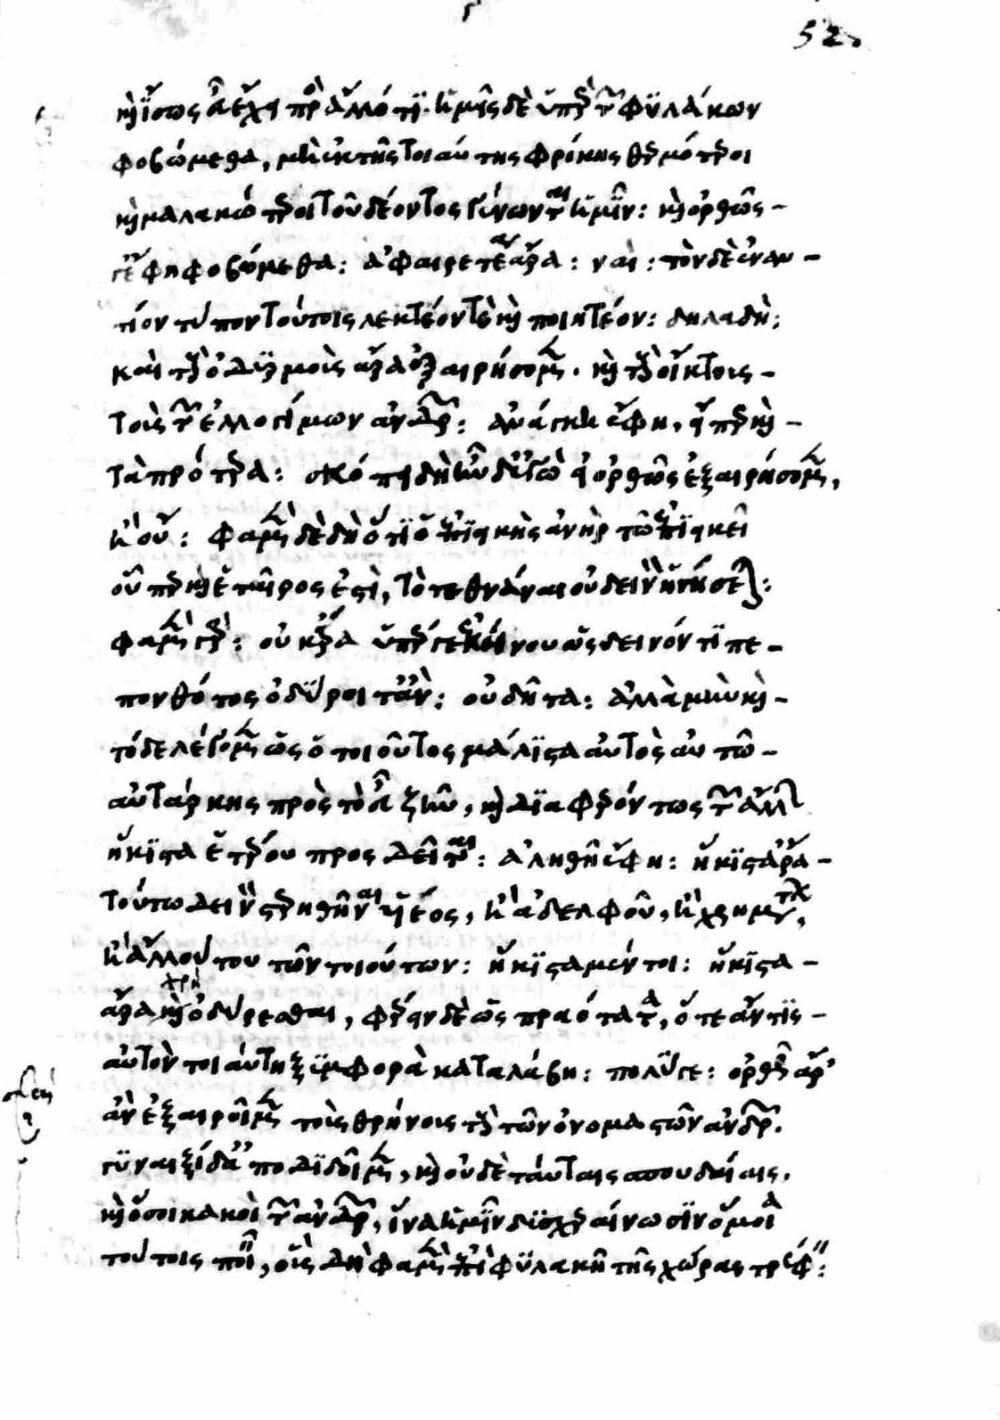 γ
52
καὶ ἴσως εὖ ἔχει πρὸς ἄλλό τι· ἡμεῖς δὲ ὑπὲρ τῶν φυλάκων
φοβούμεθα, μὴ ἐκ τῆς τοιαύτης φρίκης θερμότεροι
καὶ μαλακώτεροι τοῦ δέοντος γένωνται ἡμῖν: καὶ ὀρθῶς
γ' ἔφη φοβούμεθα: ἀφαιρετέα ἄρα: ναί: τὸν δὲ ἐναν-
τίον τύπον τούτοις λεκτέον τὲ καὶ ποιητέον: δηλαδή:
καὶ τοὺς ὀδυρμοὺς ἄρα ἐξαιρήσομεν· καὶ τοὺς οἴκτους
τοὺς τῶν ἐλλογίμων ἀνδρῶν: ἀνάγκη ἔφη, εἴπερ καὶ
τὰ πρότερα: σκόπει δὴ ἦν δ' ἐγὼ εἰ ὀρθῶς ἐξαιρήσομεν,
ἢ οὔ: φαμὲν δὲ δὴ ὅτι ὁ ἐπιεικὴς ἀνὴρ τῷ ἐπιεικεῖ
οὗπερ καὶ ἑταῖρός ἐστι, τὸ τεθνάναι οὐ δεινὸν ἡγήσεται:
φαμὲν γάρ: οὐκ ἄρα ὑπέρ γε ἐκείνου ὡς δεινόν τι πε-
πονθότος ὀδύροιτ' ἄν: οὐ δῆτα: ἀλλὰ μὴν καὶ
τόδε λέγομεν ὡς ὁ τοιοῦτος μάλιστα αὐτὸς αὑτῷ
αὐτάρκης πρὸς τὸ εὖ ζῆν, καὶ διαφερόντως τῶν ἄλλων
ἥκιστα ἑτέρου προσδεῖται: ἀληθῆ ἔφη: ἥκιστα ἄρα
τούτῳ δεινὸν στερηθῆναι υἱέος, ἢ ἀδελφοῦ, ἢ χρημάτων,
ἢ ἄλλου του τῶν τοιούτων: ἥκιστα μέντοι: ἥκιστα
ἄρα καὶ ὀδύρεσθαι, φέρειν δὲ ὡς πραότατα, ὅτε ἄν τις
αὐτὸν τοιαύτη ξυμφορὰ καταλάβη: πολύ γε: ὀρθῶς ἄρ'
ἂν ἐξαιροῖμεν τοὺς θρήνους τοὺς τῶν ὀνομαστῶν ἀνδρῶν.
γυναιξὶ δ' ἀποδιδοῖμεν, καὶ οὐδὲ ταύταις σπουδαίαις.
καὶ ὅσοι κακοὶ τῶν ἀνδρῶν, ἵνα ἡμῖν δυσχεραίνωσιν ὅμοια
τούτοις ποιεῖν, οὓς δὴ φαμὲν ἐπὶ φυλακῇ τῆς χώρας τρέφειν: